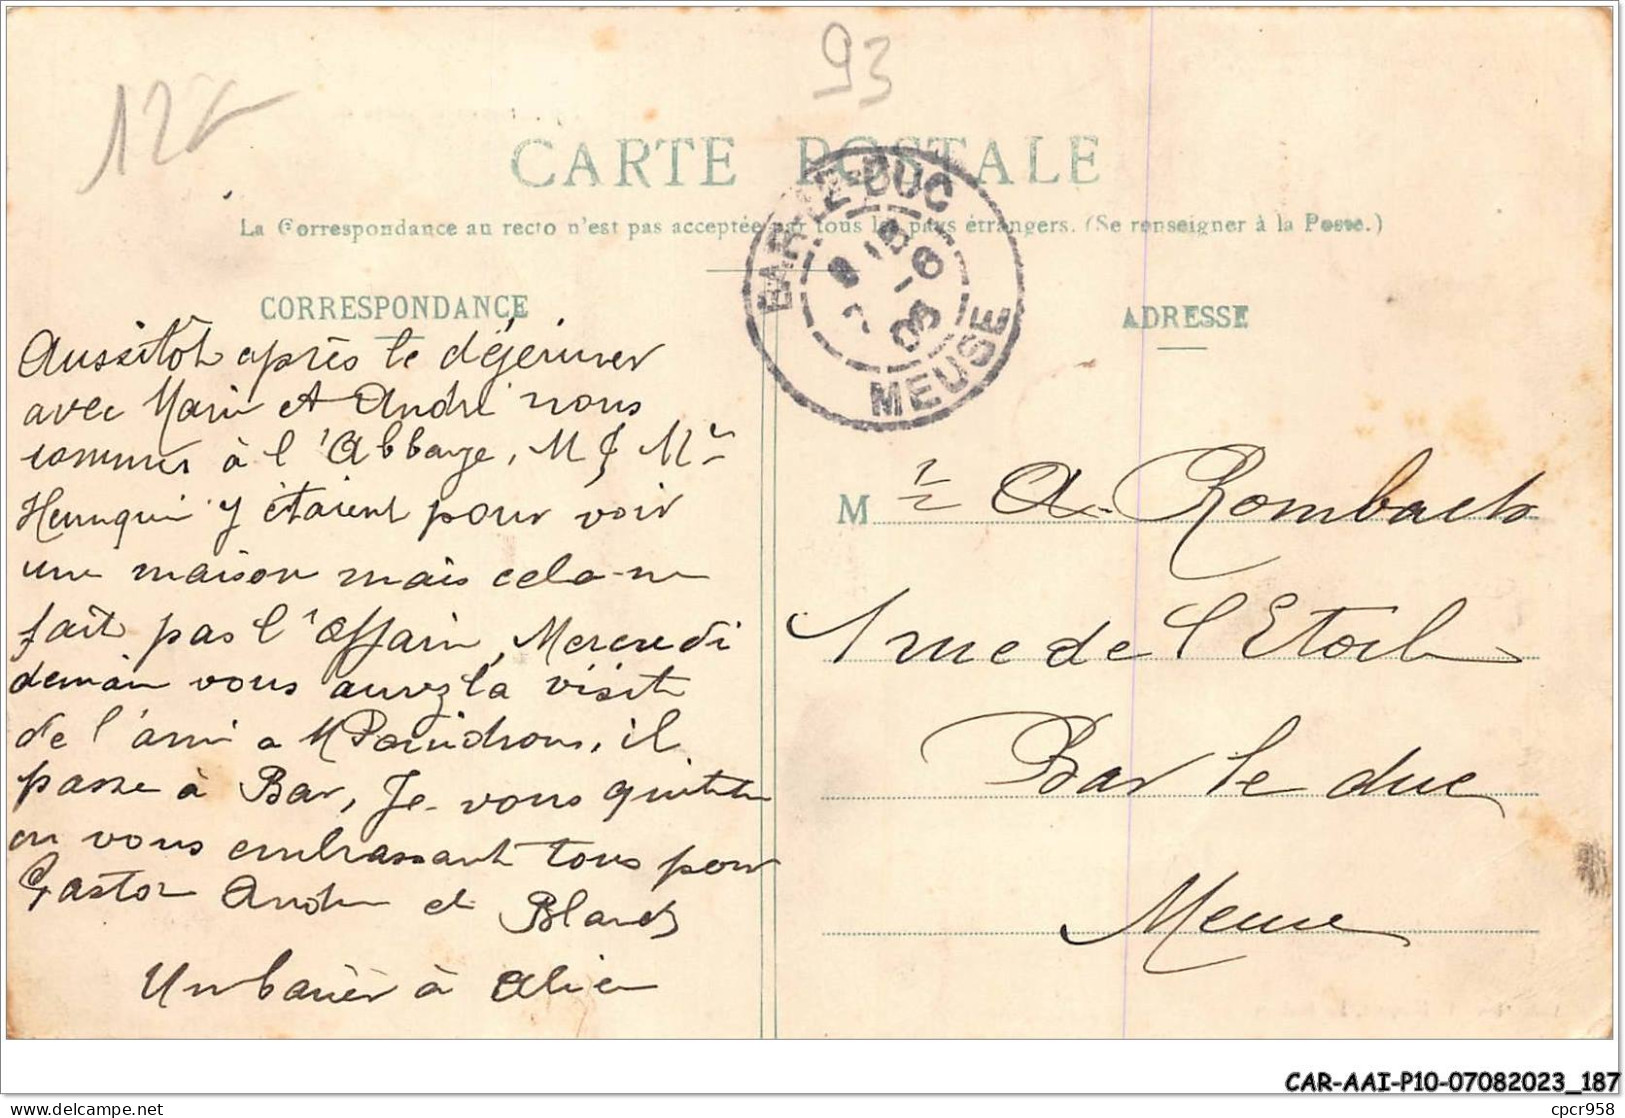 12
93
CARTE POSTALE
La Correspondance au recto n'est pas acceptée par tous les pays étrangers. (Se renseigner à la Poste.)
BAR-LE-DUC
MEUSE
CORRESPONDANCE
ADRESSE
Aussitôt après le déjeuner
avec Marie et André nous
sommes à l'Abbaye, M & Mr
Hennequin y étaient pour voir
une maison mais cela ne
fait pas l'affaire, Mercredi
demain vous aurez la visite
de l'ami a M Poindron, il
passe à Bar, Je vous quitte
en vous embrassant tous pour
Gaston André et Blanch
Un baiser à Alice
M A. Rombach
1 rue de l'Etoile
Bar le duc
Meuse
CAR-AAI-P10-07082023_187
delcampe.net
cpcr958